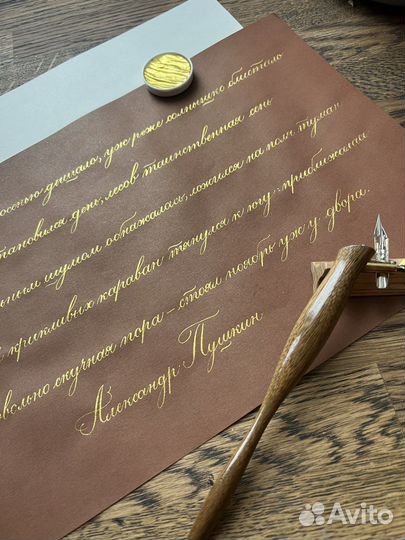 осенью дышало, уж реже солнышко блистало
тановился день, лесов таинственная сень
льным шумом обнажалась, ложился на поля туман
крикливых караван тянулся к югу: приближалась
вольно скучная пора - стоял ноябрь уж у двора.
Александр Пушкин
Avito